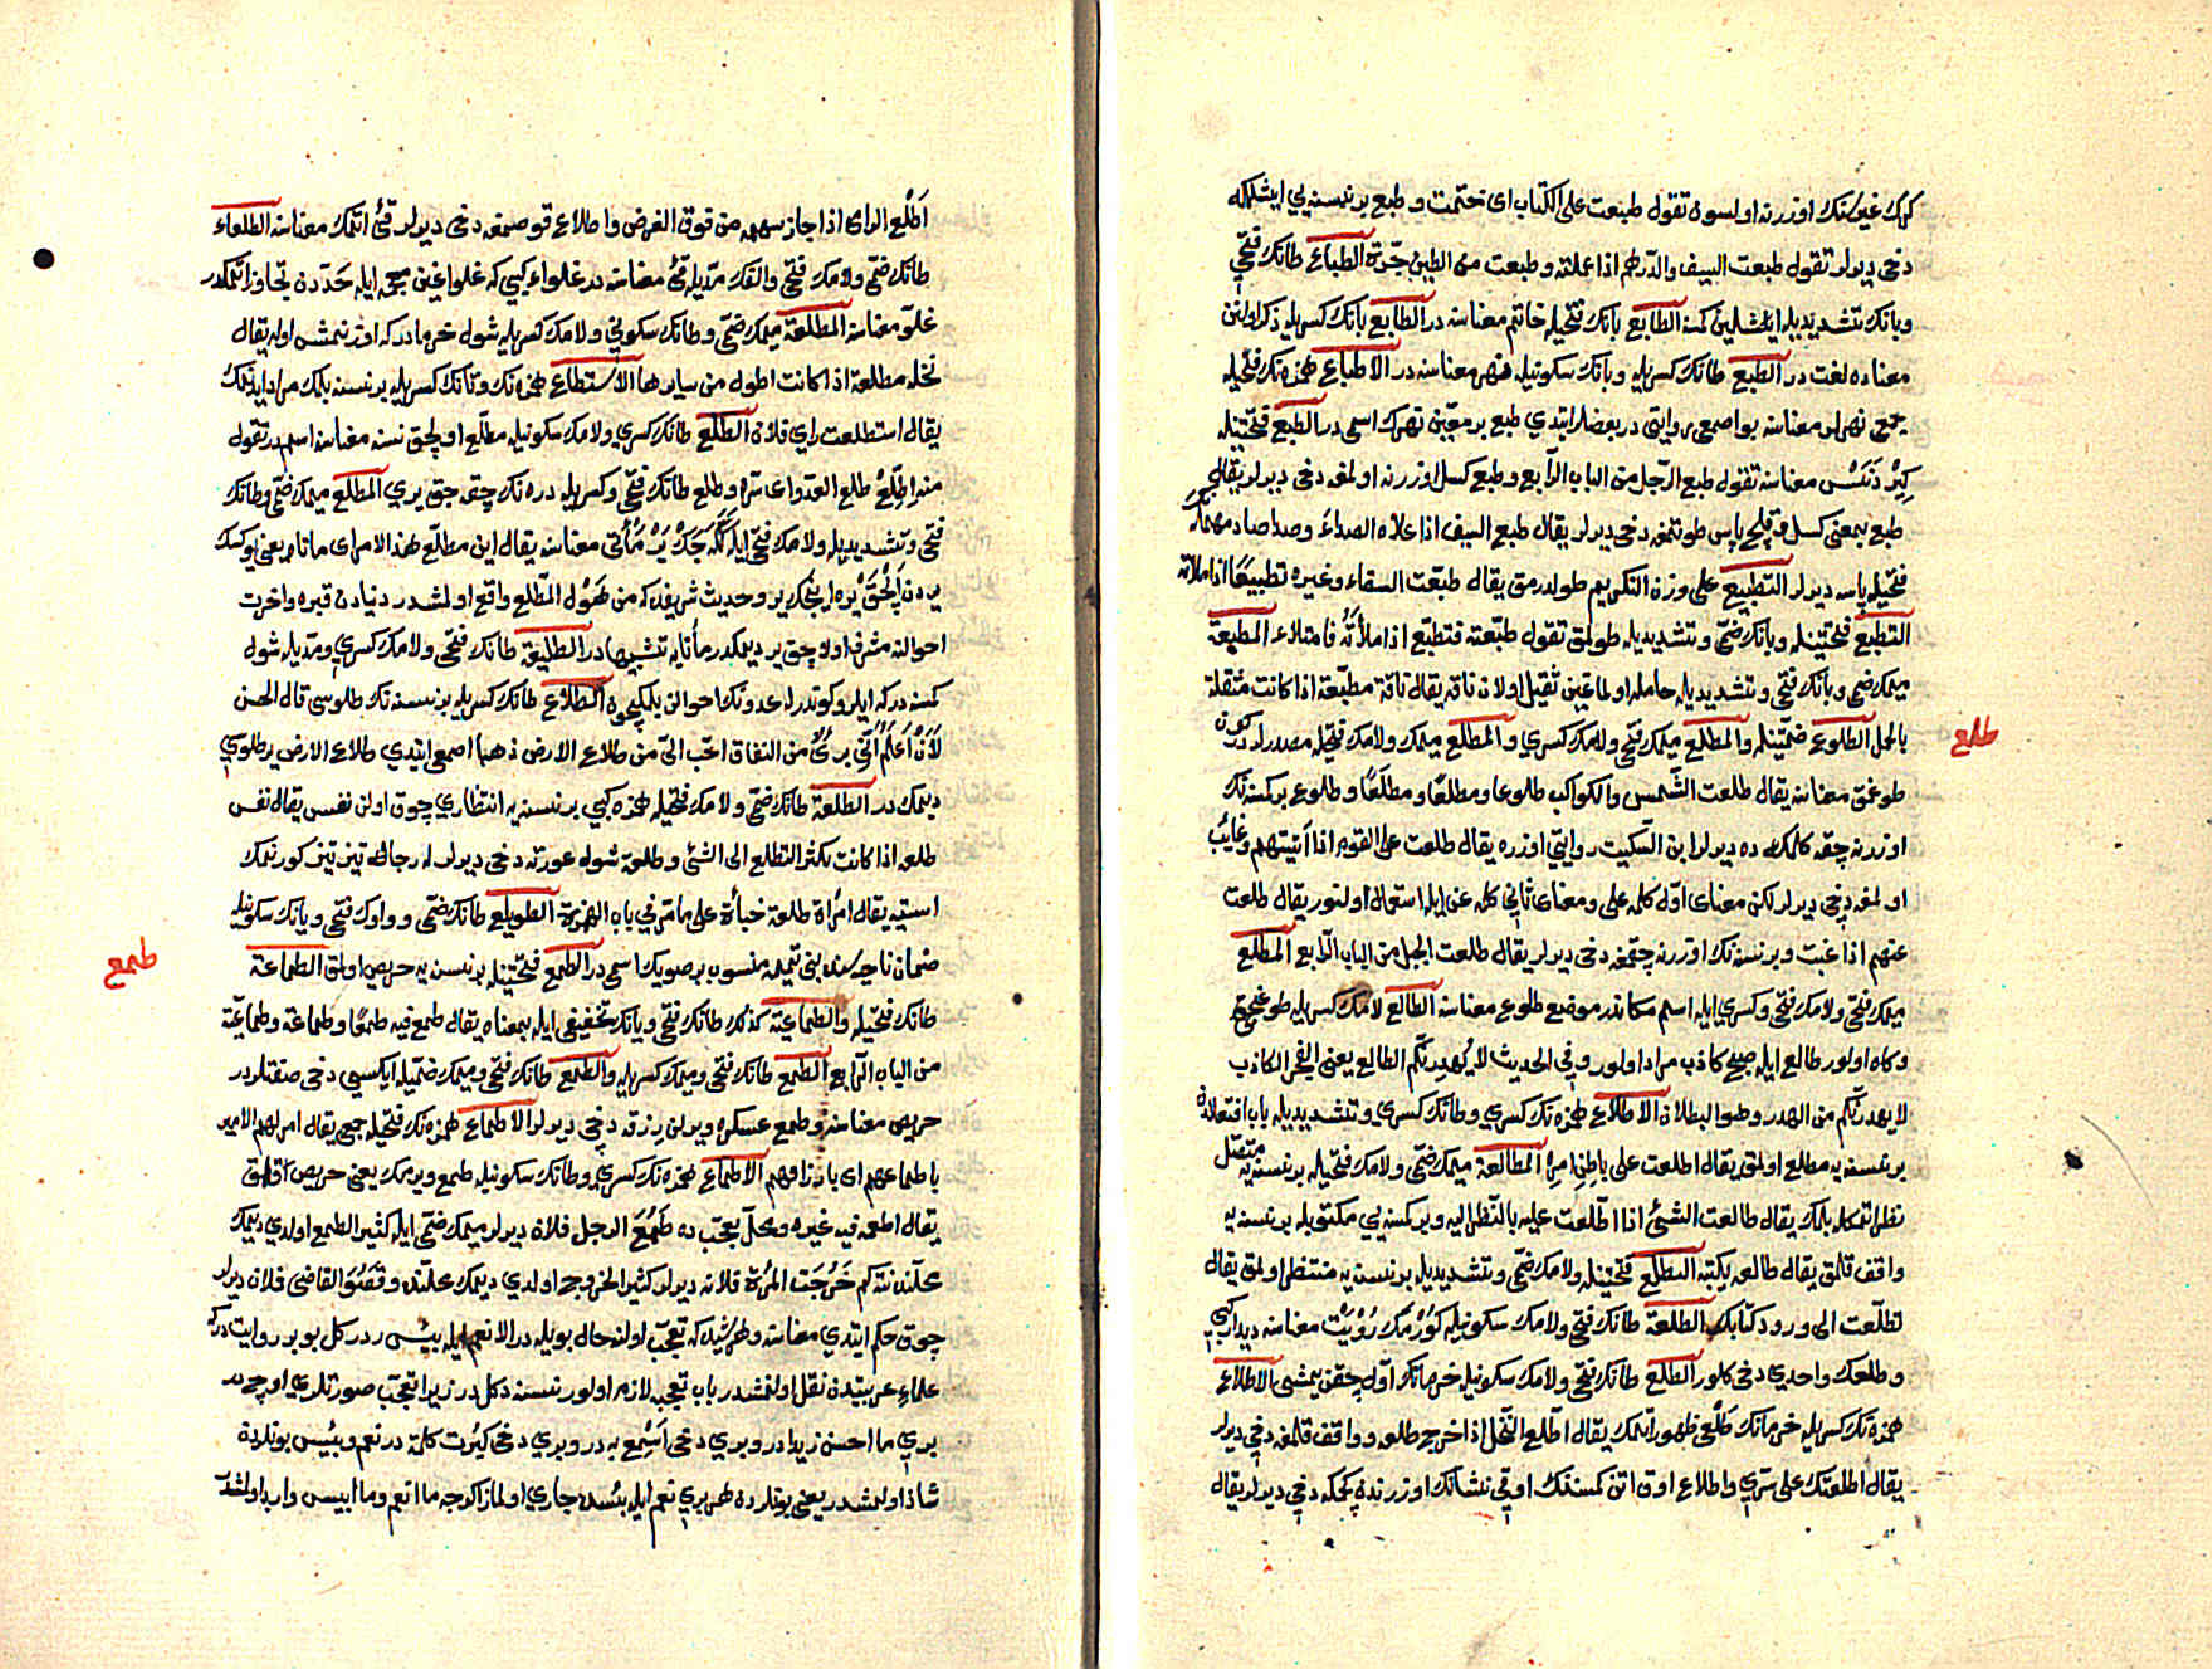 كرك غيرينك اوزرنه اولسون تقول طبعت على الكتاب اى ختمت و طبع بر نسنه يي ايشلمكه
دخى ديرلر تقول طبعت السيف والدرهم اذا عملته و طبعت من الطين جرّة الطباع طانك فتحى
و بانك تشديديله ايشلين كمسه الطابع بانك فتحيله خاتم معناسنه در الطابع بانك كسريله ذكر اولنن
معناده لغت در الطبع طانك كسريله و بانك سكونيله نهر معناسنه در الاطباع همزه نك فتحيله
جمع نهرلر معناسنه بو اصمعى روايتى در بعضلر ايتدي طبع بر معيّن نهرك اسمى در الطبع فتحتينله
كِيرْ دَنَسْ معناسنه تقول طبع الرّجل من الباب الرّابع و طبع كسل اوزرنه اولمغه دخى ديرلر يقال
طبع بمعنى كسل و قلج پاس طوتمغه دخى ديرلر يقال طبع السيف اذا علاه الصداءُ و صدا صاد مهمله نك
فتحيله پاسه ديرلر التطبيع على وزن التكريم طولدرمق يقال طبّعت السقاء و غيره تطبيعًا اذا ملأته
التطبع فتحتينله و بانك ضمى و تشديديله طولمق تقول طبّعته فتطبّع اذا ملأتُه فامتلاء المطبعة
ميمك ضمى و بانك فتحى و تشديديله حامله اولماغين ثقيل اولان ناقه يقال ناقة مطبّعة اذا كانت مثقلة
طلع
بالحمل الطلوع ضمّتينله والمطلع ميمك فتحى ولامك كسري والمطلع ميمك ولامك فتحيله مصدرلردر كون
طوغمق معناسنه يقال طلعت الشّمس والكواكب طلوعا و مطلعًا و مطلَعًا و طلوع بر كسنه نك
اوزرنه چقه كلمك ده ديرلر ابن السّكيت روايتى اوزره يقال طلعت على القوم اذا أتيتهم و غايب
اولمغه دخى ديرلر لكن معناى اوّل كلمه على و معناى ثانى كلمه عن ايله استعمال اولنور يقال طلعت
عنهم اذا غبت و بر نسنه نك اوزرنه چقمغه دخى ديرلر يقال طلعت الجبل من الباب الرّابع المطلع
ميمك فتحى ولامك فتحى و كسري ايله اسم مكاندر موضع طلوع معناسنه الطالع لامك كسريله طوغيجى
و كاه اولور طالع ايله صبح كاذب مراد اولور و فى الحديث لا يُهيدنّكم الطالع يعنى الفجر الكاذب
لا يهدرنّكم من الهدر و هو البطلان الاطلاع همزه نك كسري و طانك كسري و تشديديله باب افتعالدن
بر نسنه يه مطلع اولمق يقال اطلعت على باطن امره المطالعة ميمك ضمى ولامك فتحيله بر نسنه يه
نظر اتمكله بلمك يقال طالعت الشئ اذا اطّلعت عليه بالنّظر اليه و بر كسنه يي مكتوبله بر نسنه يه
واقف قلمق يقال طالعه بكتبه التطلع فتحتينله ولامك ضمى و تشديديله بر نسنه يه منتظر اولمق يقال
تطلّعت الى ورود كتابك الطلعة طانك فتحى ولامك سكونيله كورمك رُؤيت معناسنه ديدار كبى
و طلعك واحدي دخى كلور الطلع طانك فتحى ولامك سكونيله خرمانك اوّل چقن يمشى الاطلاع
همزه نك كسريله خرمانك طلعى ظهور اتمك يقال اطلع النّخل اذا خرج طلعه و واقف قلمغه دخى ديرلر
يقال اطلعتك على سرّي و اطلاع اوق اتن كمسنك اوقى نشانك اوزرندن كچمكه دخى ديرلر يقال
اَطْلع الرامى اذا جاز سهمه من فوق الغرض و اطلاع قوصمغه دخى ديرلر قئ اتمك معناسنه الطلعاء
طانك ضمى ولامك فتحى و الفك مدّيله قئ معناسنه در غلواء كبى كه غلوا غين معجمه ايله حَدّدن تجاوز اتمكدر
غلوّ معناسنه المطلعة ميمك ضمى و طانك سكونى ولامك كسريله شول خرمادر كه اوزنمش اوله يقال
نخله مطلعة اذا كانت اطول من سايرها الاستطلاع همزه نك و تانك كسريله بر نسنه بلمك مراد ايدنمك
يقال استطلعت راي فلان الطلع طانك كسري ولامك سكونيله مطلع اولجق نسنه معناسنه اسم در تقول
منه اِطّلِعْ طلع العدو اى سرّه و طلع طانك فتحى و كسريله دره نك چقه جق يري المطلع ميمك ضمى و طانك
فتحى و تشديديله ولامك فتحى ايله كَلَه جَكْ يَرْ مَأتى معناسنه يقال اين مطلع هذا الامر اى ماتاه يعنى يوكسك
يردن اَلْچَقْ يره اينجك ير و حديث شريفده كه من هَوْل المطّلع واقع اولمشدر دنيادن قبره و اخرت
احوالنه مشرف اولاجق ير ديمكدر مأتايه تشبيها در الطليعة طانك فتحى ولامك كسري و مدّيله شول
كمسنه دركه ايلرو كوندرلر عدونك احوالن بلمكيچون الطلاع طانك كسريله بر نسنه نك طلوسى قال الحسن
لَأَنْ أَعْلَمُ أنّي برئٌ من النفاق احّب الىّ من طلاع الارض ذهبا اصمعى ايتدي طلاع الارض ير طلوسي
ديمك در الطلعة طانك ضمى ولامك فتحيله همزه كبى بر نسنه يه انتظاري چوق اولن نفس يقال نفس
طلعه اذا كانت تكثر التطلع الى الشئ و طلعة شول عورته دخى ديرلر له رجاله تيز تيز كورنمك
استيه يقال امرأة طلعة خبأة على ما مرّ فى باب الهمزة الطويلع طانك ضمى و واوك فتحى و يانك سكونيله
طمع
ضمان ناحيه سنده بنى تميمه منسوب بر صويك اسمى در الطمع فتحتينله بر نسنه يه حريص اولمق الطماعة
طانك فتحيله والطماعية كذلك طانك فتحى و يانك تخفيفى ايله بمعناه يقال طمع فيه طمعًا و طماعة و طماعيّة
من الباب الرّابع الطمع طانك فتحى و ميمك كسريله والطمع طانك فتحى و ميمك ضمّيله ايكسي دخى صفتلردر
حريص معناسنه و طمع عسكره ويرلن رزقه دخى ديرلر الاطماع همزه نك فتحيله جمع يقال امر لهم الامير
باطماعهم اى بارزاقهم الاطماع همزه نك كسري و طانك سكونيله طمع ويرمك يعنى حريص قلمق
يقال اطمعه فيه غيره و محلّ تعجّب ده طَمُعَ الرجل فلان ديرلر ميمك ضمى ايله كثير الطمع اولدي ديمك
محلّنده نته كم خَرُجَت المرأة فلانه ديرلر كثير الخروج اولدي ديمك محلّنده و قَضُوَ القاضى فلان ديرلر
چوق حكم ايتدي معناسنه و هر شيده كه تعجّب اولنه حال بويله در الا نعم ايله بئس ده در كل بو بر روايت دركه
علماء عربيتدن نقل اولنمشدر باب تعجبه لازم اولور نسنه دكل در زيرا تعجّب صورتلري اوچ در
بري ما احسن زيدا در و بري دخى اَسْمِع به در و بري دخى كبُرت كلمة در نعم و بئس بونلردن
شاذ اولمشدر يعنى بونلرده هر بري نعم ايله بئسده جاري اولماز اكرچه ما انعم و ما ابيس وارد اولمشدر